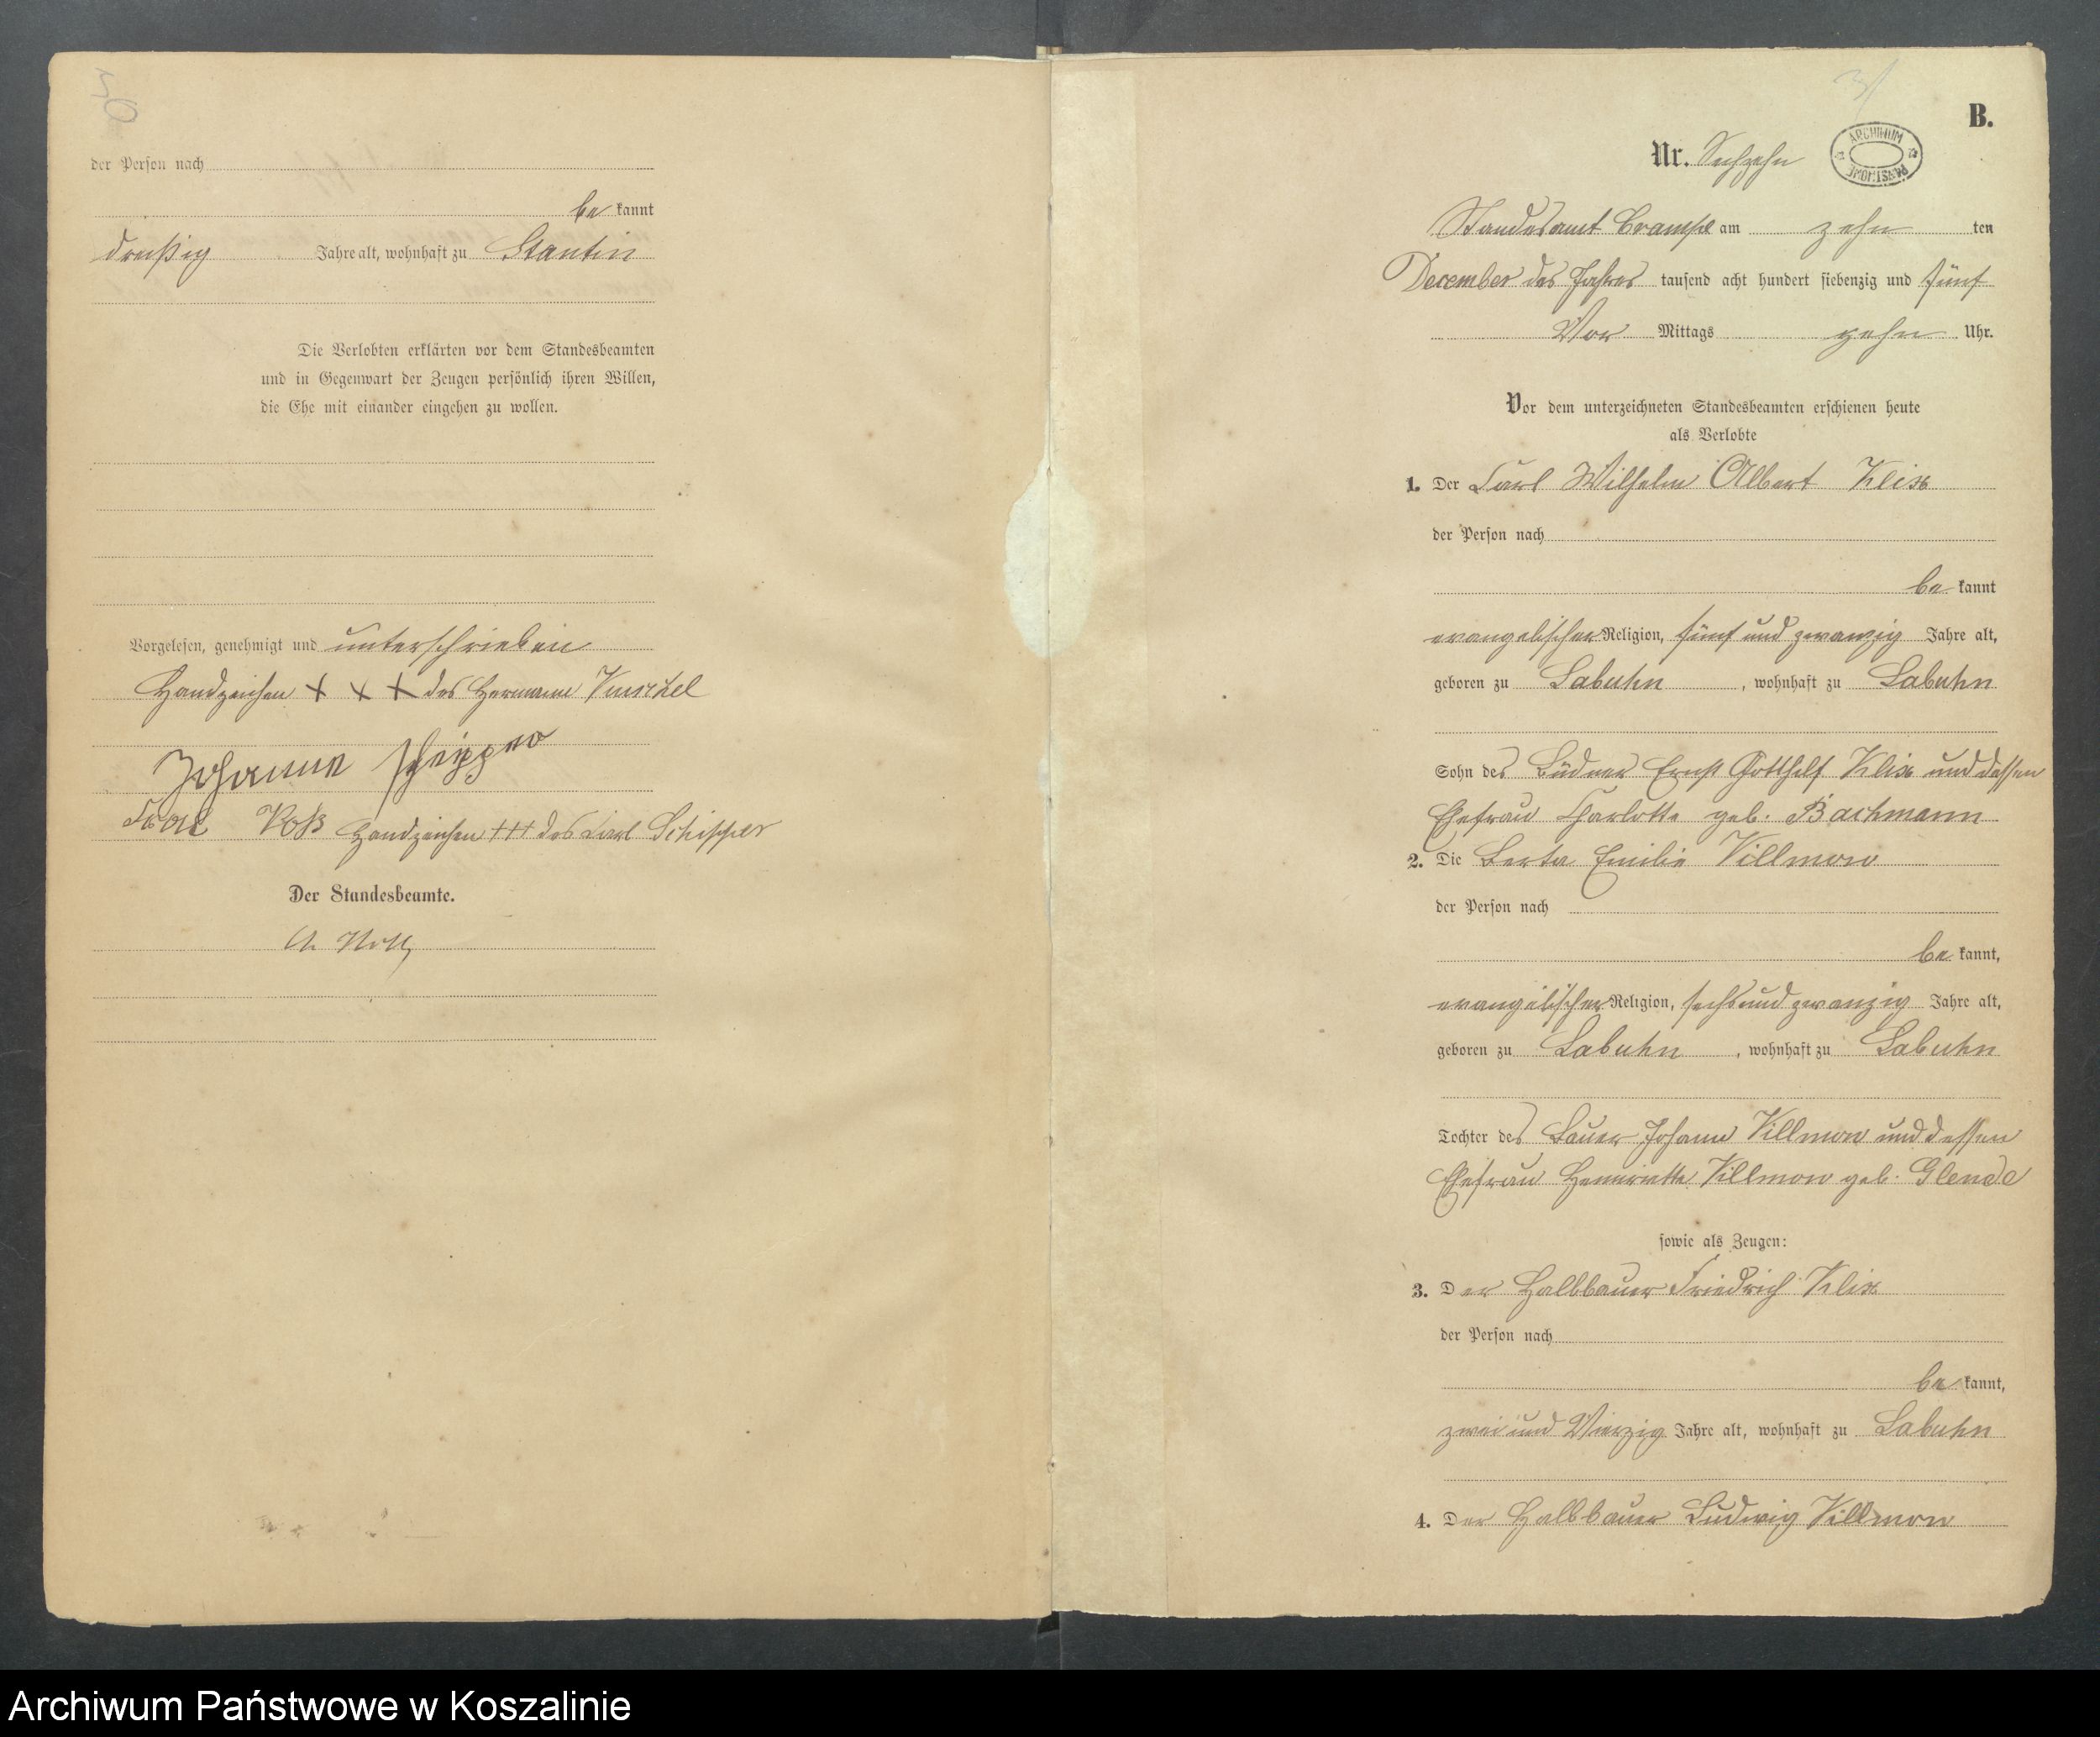 30
der Person nach
be kannt
dreißig Jahre alt, wohnhaft zu Stantin
Die Verlobten erklärten vor dem Standesbeamten
und in Gegenwart der Zeugen persönlich ihren Willen,
die Ehe mit einander eingehen zu wollen.
Vorgelesen, genehmigt und unterschrieben
Handzeichen + + + des Hermann Kuschel
Johanne
Voß Handzeichen +++ des Carl Schipper
Der Standesbeamte.
31
B.
Nr. Sechzehn
ARCHIWUM PAŃSTWOWE
Standesamt Crampe am zehn ten
December des Jahres tausend acht hundert siebenzig und fünf
Vor Mittags zehn Uhr.
Vor dem unterzeichneten Standesbeamten erschienen heute
als Verlobte
1. Der Carl Wilhelm Albert Klix
der Person nach
be kannt
evangelischer Religion, fünf und zwanzig Jahre alt,
geboren zu Labuhn, wohnhaft zu Labuhn
Sohn des Büdner Ernst Gotthilf Klix und dessen
Ehefrau Charlotte geb. Bachmann
2. Die Berta Emilie Villmow
der Person nach
be kannt,
evangelischer Religion, sechs und zwanzig Jahre alt,
geboren zu Labuhn, wohnhaft zu Labuhn
Tochter des Bauer Johann Villmow und dessen
Ehefrau Henriette Villmow geb. Glende
sowie als Zeugen:
3. Der Halbbauer Friedrich Klix
der Person nach
be kannt,
zwei und Vierzig Jahre alt, wohnhaft zu Labuhn
4. Der Halbbauer Ludwig Villmow
Archiwum Państwowe w Koszalinie